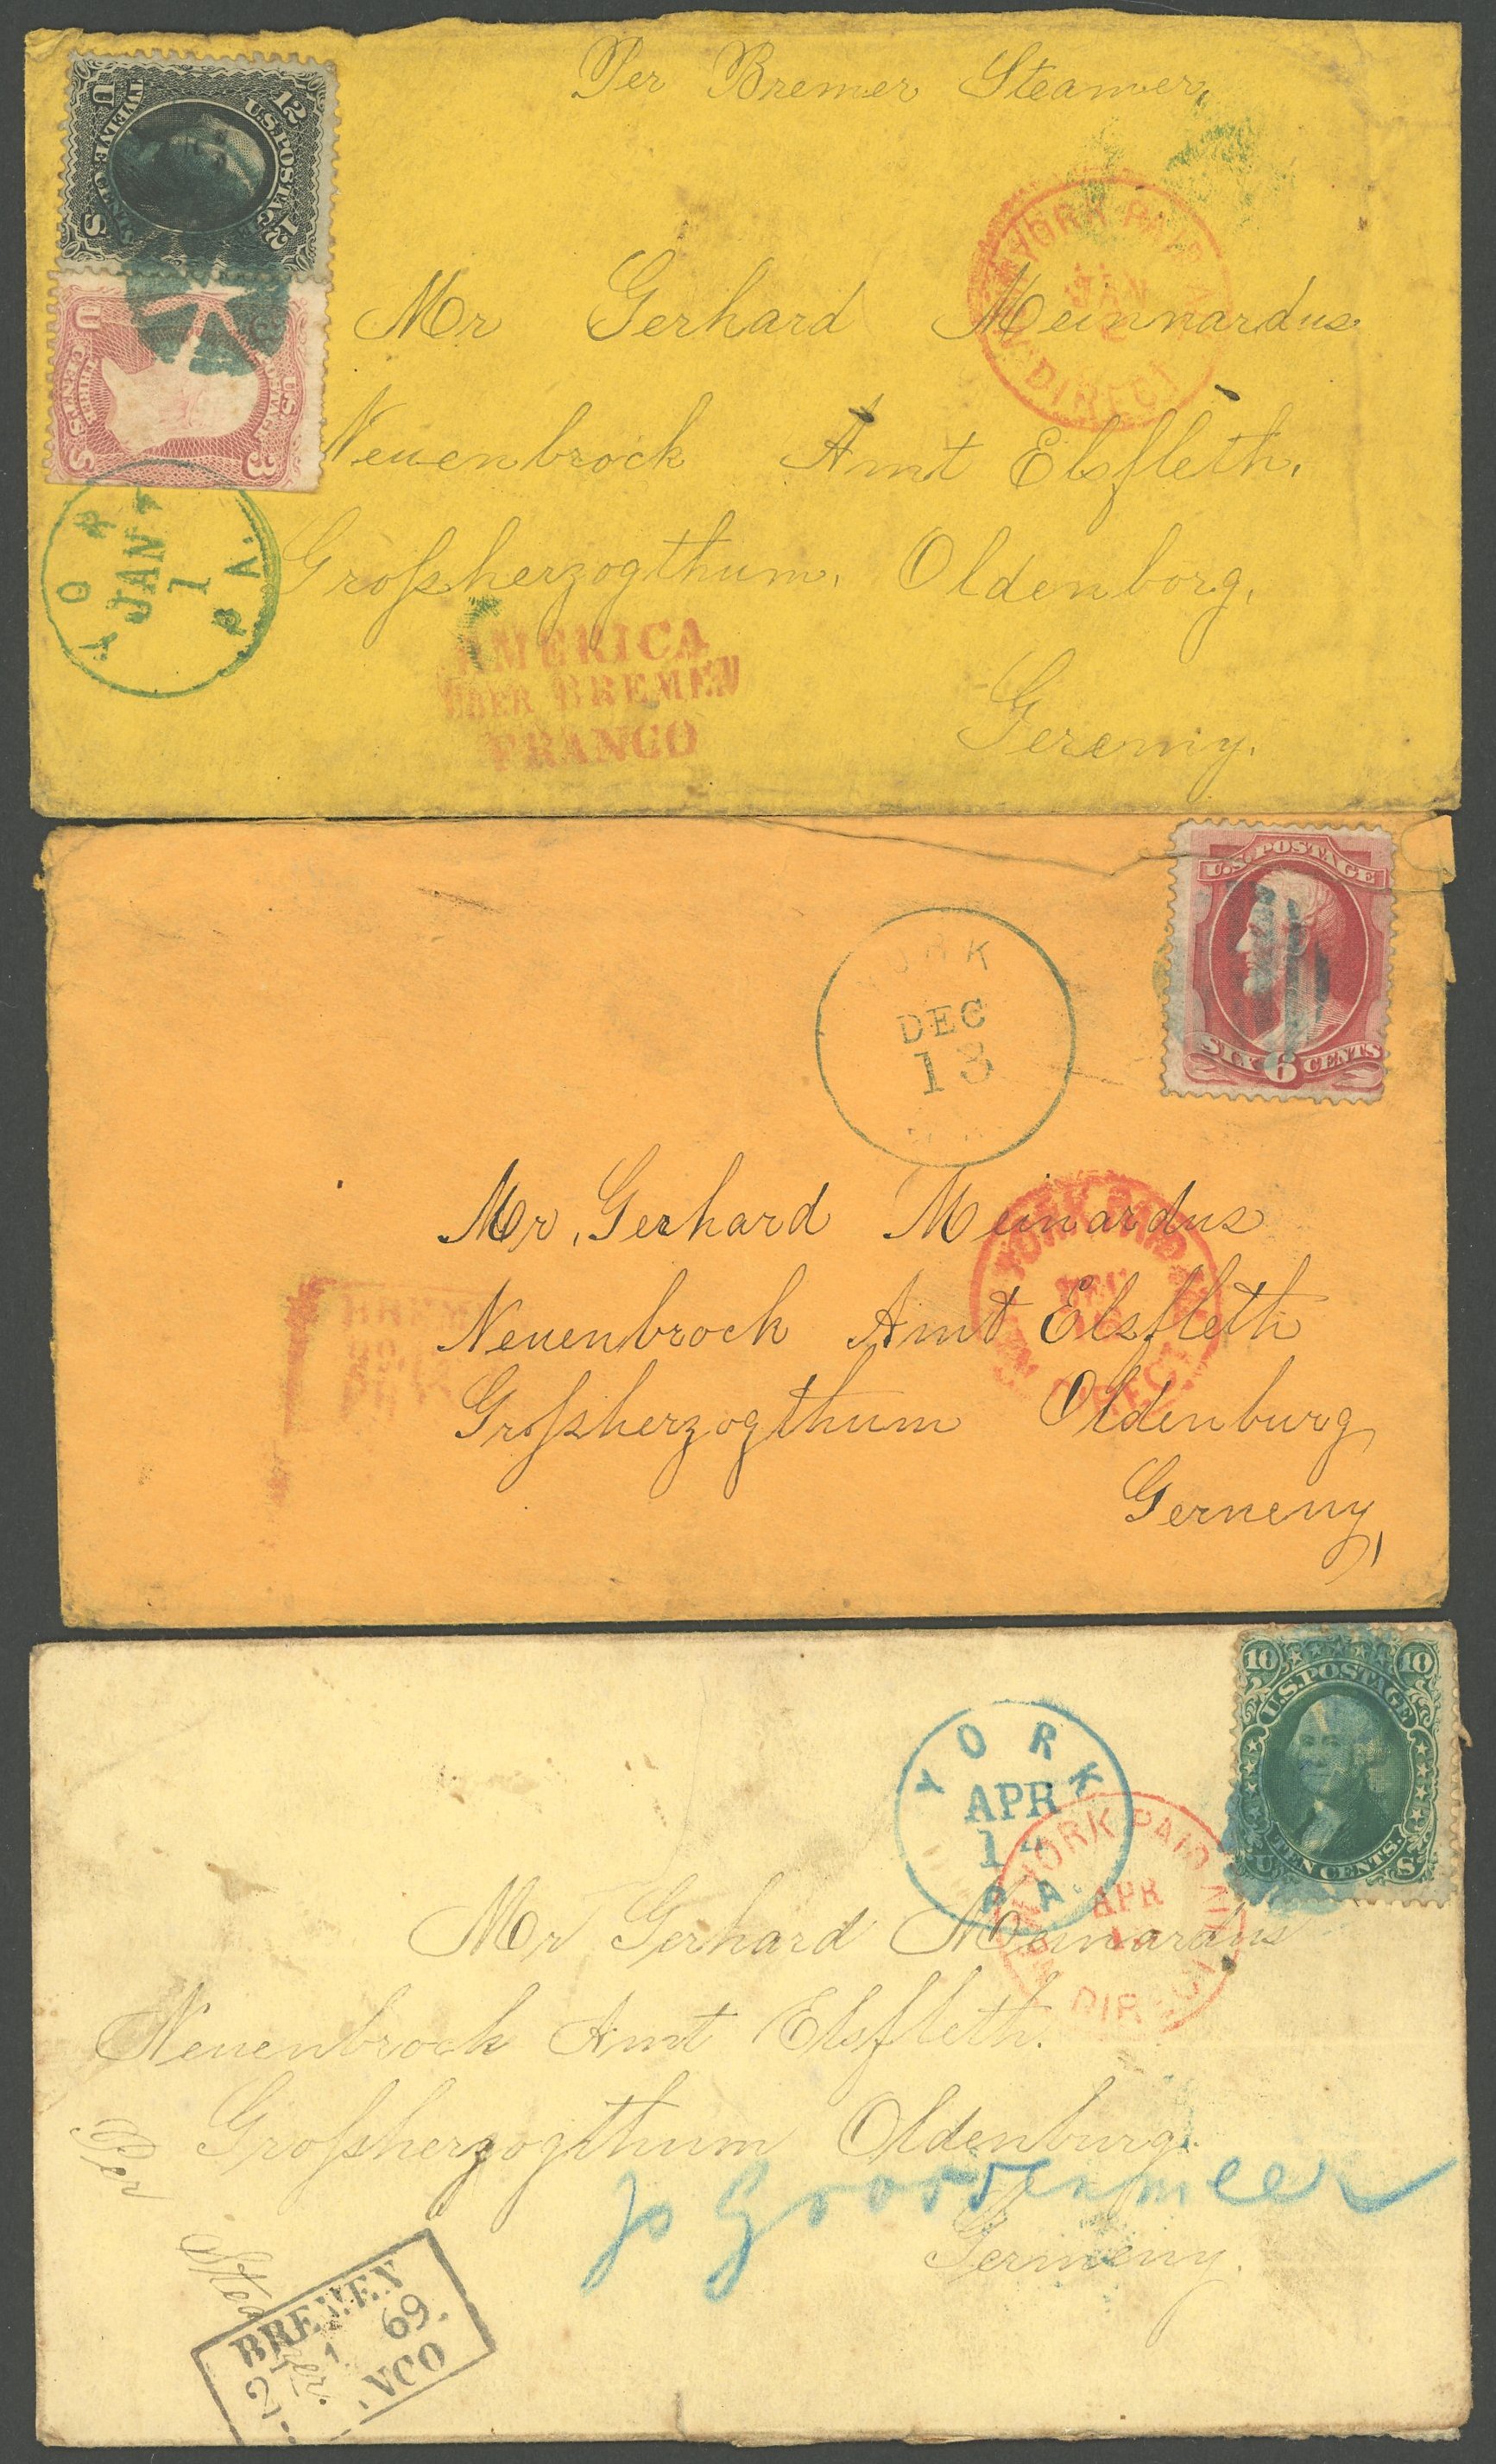 Per Bremer Steamer,
U.S. POSTAGE
12 12
TWELVE CENTS
U S
U.S. POSTAGE
3
THREE CENTS
U S
YORK PAID ALL
DIRECT
JAN
2
Mr Gerhard Meinnardus
Neuenbrock Amt Elsfleth,
Großherzogthum, Oldenborg,
Geremy.
YORK PA.
JAN
1
AMERICA
ÜBER BREMEN
FRANCO
U.S. POSTAGE
SIX 6 CENTS
YORK
DEC
13
YORK PAID
DEC
DIRECT
Mr, Gerhard Meinardus
Neuenbrock Amt Elsfleth
Großherzogthum Oldenburg
Gerneny,
10 10
U.S. POSTAGE
TEN CENTS.
U S
YORK
APR
14
PA.
YORK PAID ALL
APR
DIRECT
Mr Gerhard Meinardus
Neuenbrock Amt Elsfleth.
Großherzogthum Oldenburg.
Germeny.
Per Steamer.
BREMEN
69.
NCO